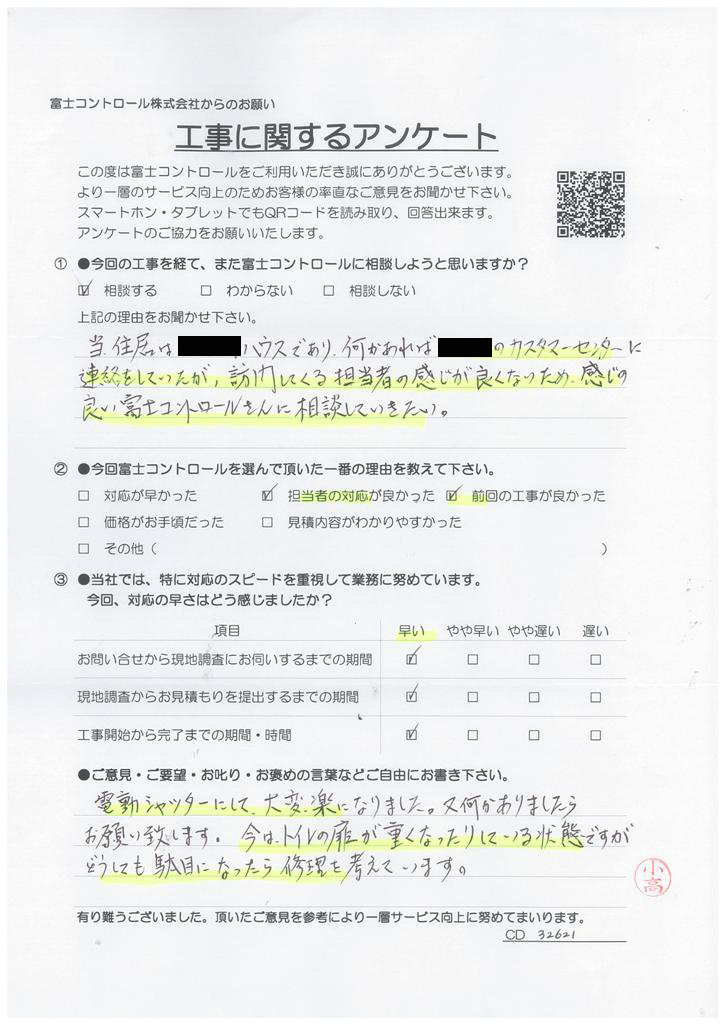 富士コントロール株式会社からのお願い
工事に関するアンケート
この度は富士コントロールをご利用いただき誠にありがとうございます。
より一層のサービス向上のためお客様の率直なご意見をお聞かせ下さい。
スマートホン・タブレットでもQRコードを読み取り、回答出来ます。
アンケートのご協力をお願いいたします。
① ●今回の工事を経て、また富士コントロールに相談しようと思いますか？
☑ 相談する □ わからない □ 相談しない
上記の理由をお聞かせ下さい。
当住居は ハウスであり、何かあれば のカスタマーセンターに
連絡をしていたが、訪門してくる担当者の感じが良くないため、感じの
良い富士コントロールさんに相談していきたい。
② ●今回富士コントロールを選んで頂いた一番の理由を教えて下さい。
□ 対応が早かった ☑ 担当者の対応が良かった ☑ 前回の工事が良かった
□ 価格がお手頃だった □ 見積内容がわかりやすかった
□ その他（ ）
③ ●当社では、特に対応のスピードを重視して業務に努めています。
今回、対応の早さはどう感じましたか？
項目 早い やや早い やや遅い 遅い
お問い合せから現地調査にお伺いするまでの期間 ☑ □ □ □
現地調査からお見積もりを提出するまでの期間 ☑ □ □ □
工事開始から完了までの期間・時間 ☑ □ □ □
●ご意見・ご要望・お叱り・お褒めの言葉などご自由にお書き下さい。
電動シャッターにして、大変、楽になりました。又何かありましたら
お願い致します。今は、トイレの扉が重くなったりしている状態ですが
どうしても駄目になったら修理を考えています。
小高
有り難うございました。頂いたご意見を参考により一層サービス向上に努めてまいります。
CD 32621